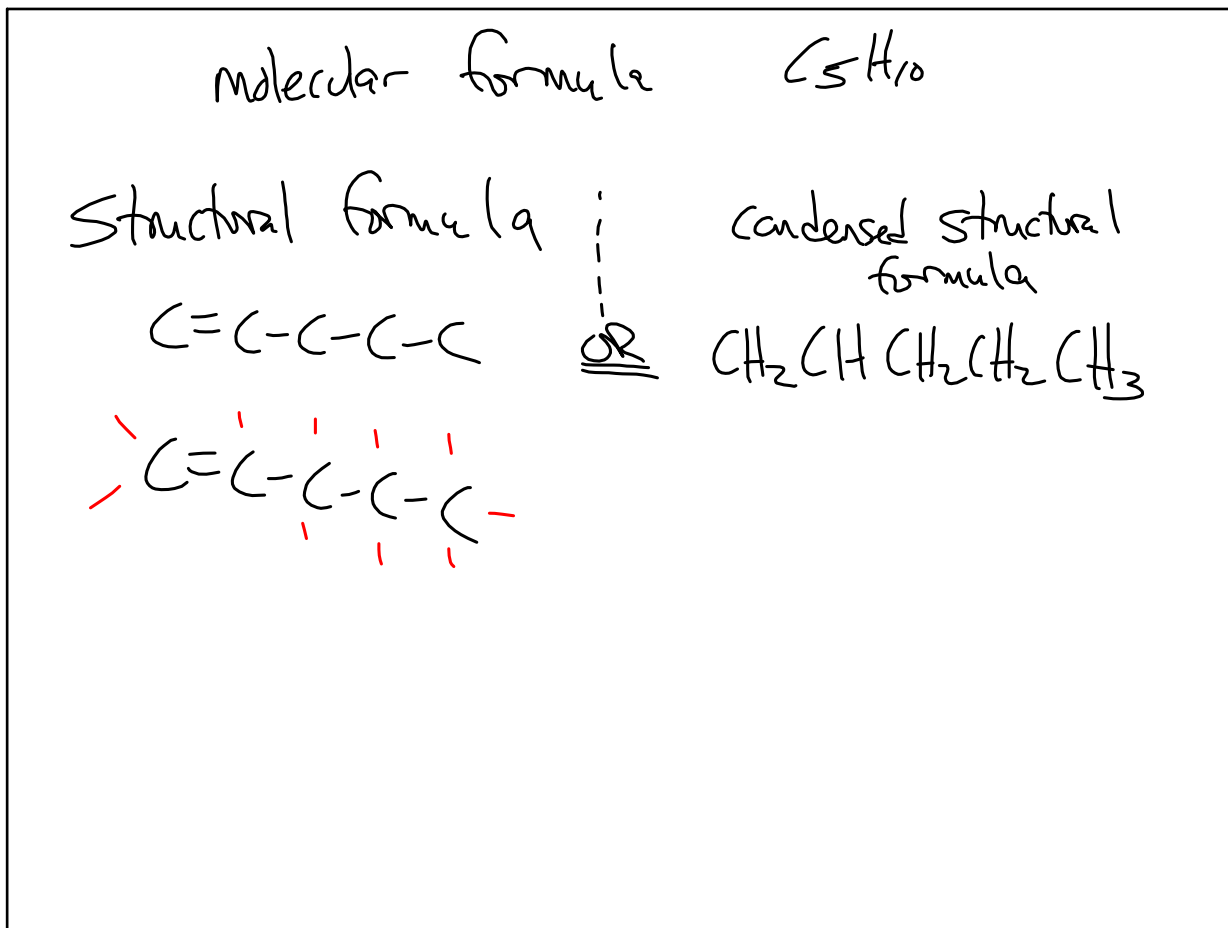 molecular formula C5H10
Structural formula
condensed structural
formula
C=C-C-C-C
OR
CH2CHCH2CH2CH3
C=C-C-C-C